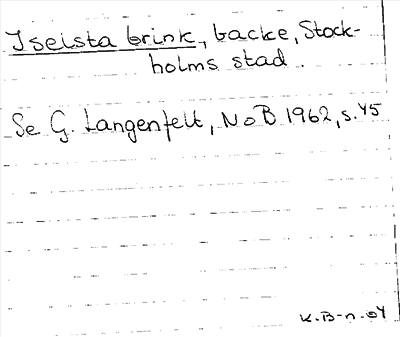 Iseista brink, backe, Stock-
holms stad.
Se G. Langenfelt, NoB 1962, s. 45
K. B-n. 04